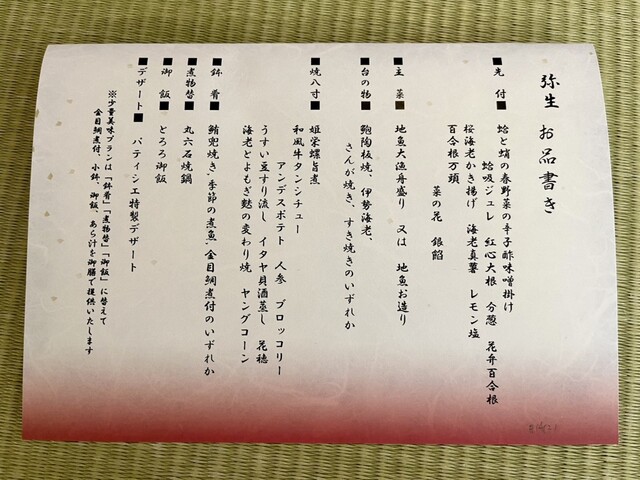 弥生 お品書き
■先付■ 蛤と蛸の春野菜の辛子酢味噌掛け
蛤吸ジュレ 紅心大根 分葱 花弁百合根
桜海老かき揚げ 海老真薯 レモン塩
百合根万頭
菜の花 銀餡
■主菜■ 地魚大漁舟盛り 又は 地魚お造り
■台の物■ 鮑陶板焼、伊勢海老、
さんが焼き、すき焼きのいずれか
■焼八寸■ 姫栄螺旨煮
和風牛タンシチュー
アンデスポテト 人参 ブロッコリー
うすい豆すり流し イタヤ貝酒蒸し 花穂
海老とよもぎ麩の変わり焼 ヤングコーン
■鉢肴■ 鮪兜焼き、季節の煮魚、金目鯛煮付のいずれか
■煮物替■ 丸六石焼鍋
■御飯■ とろろ御飯
■デザート■ パティシエ特製デザート
※少量美味プランは「鉢肴」「煮物替」「御飯」に替えて
金目鯛煮付、小鉢、御飯、あら汁を御膳で提供いたします